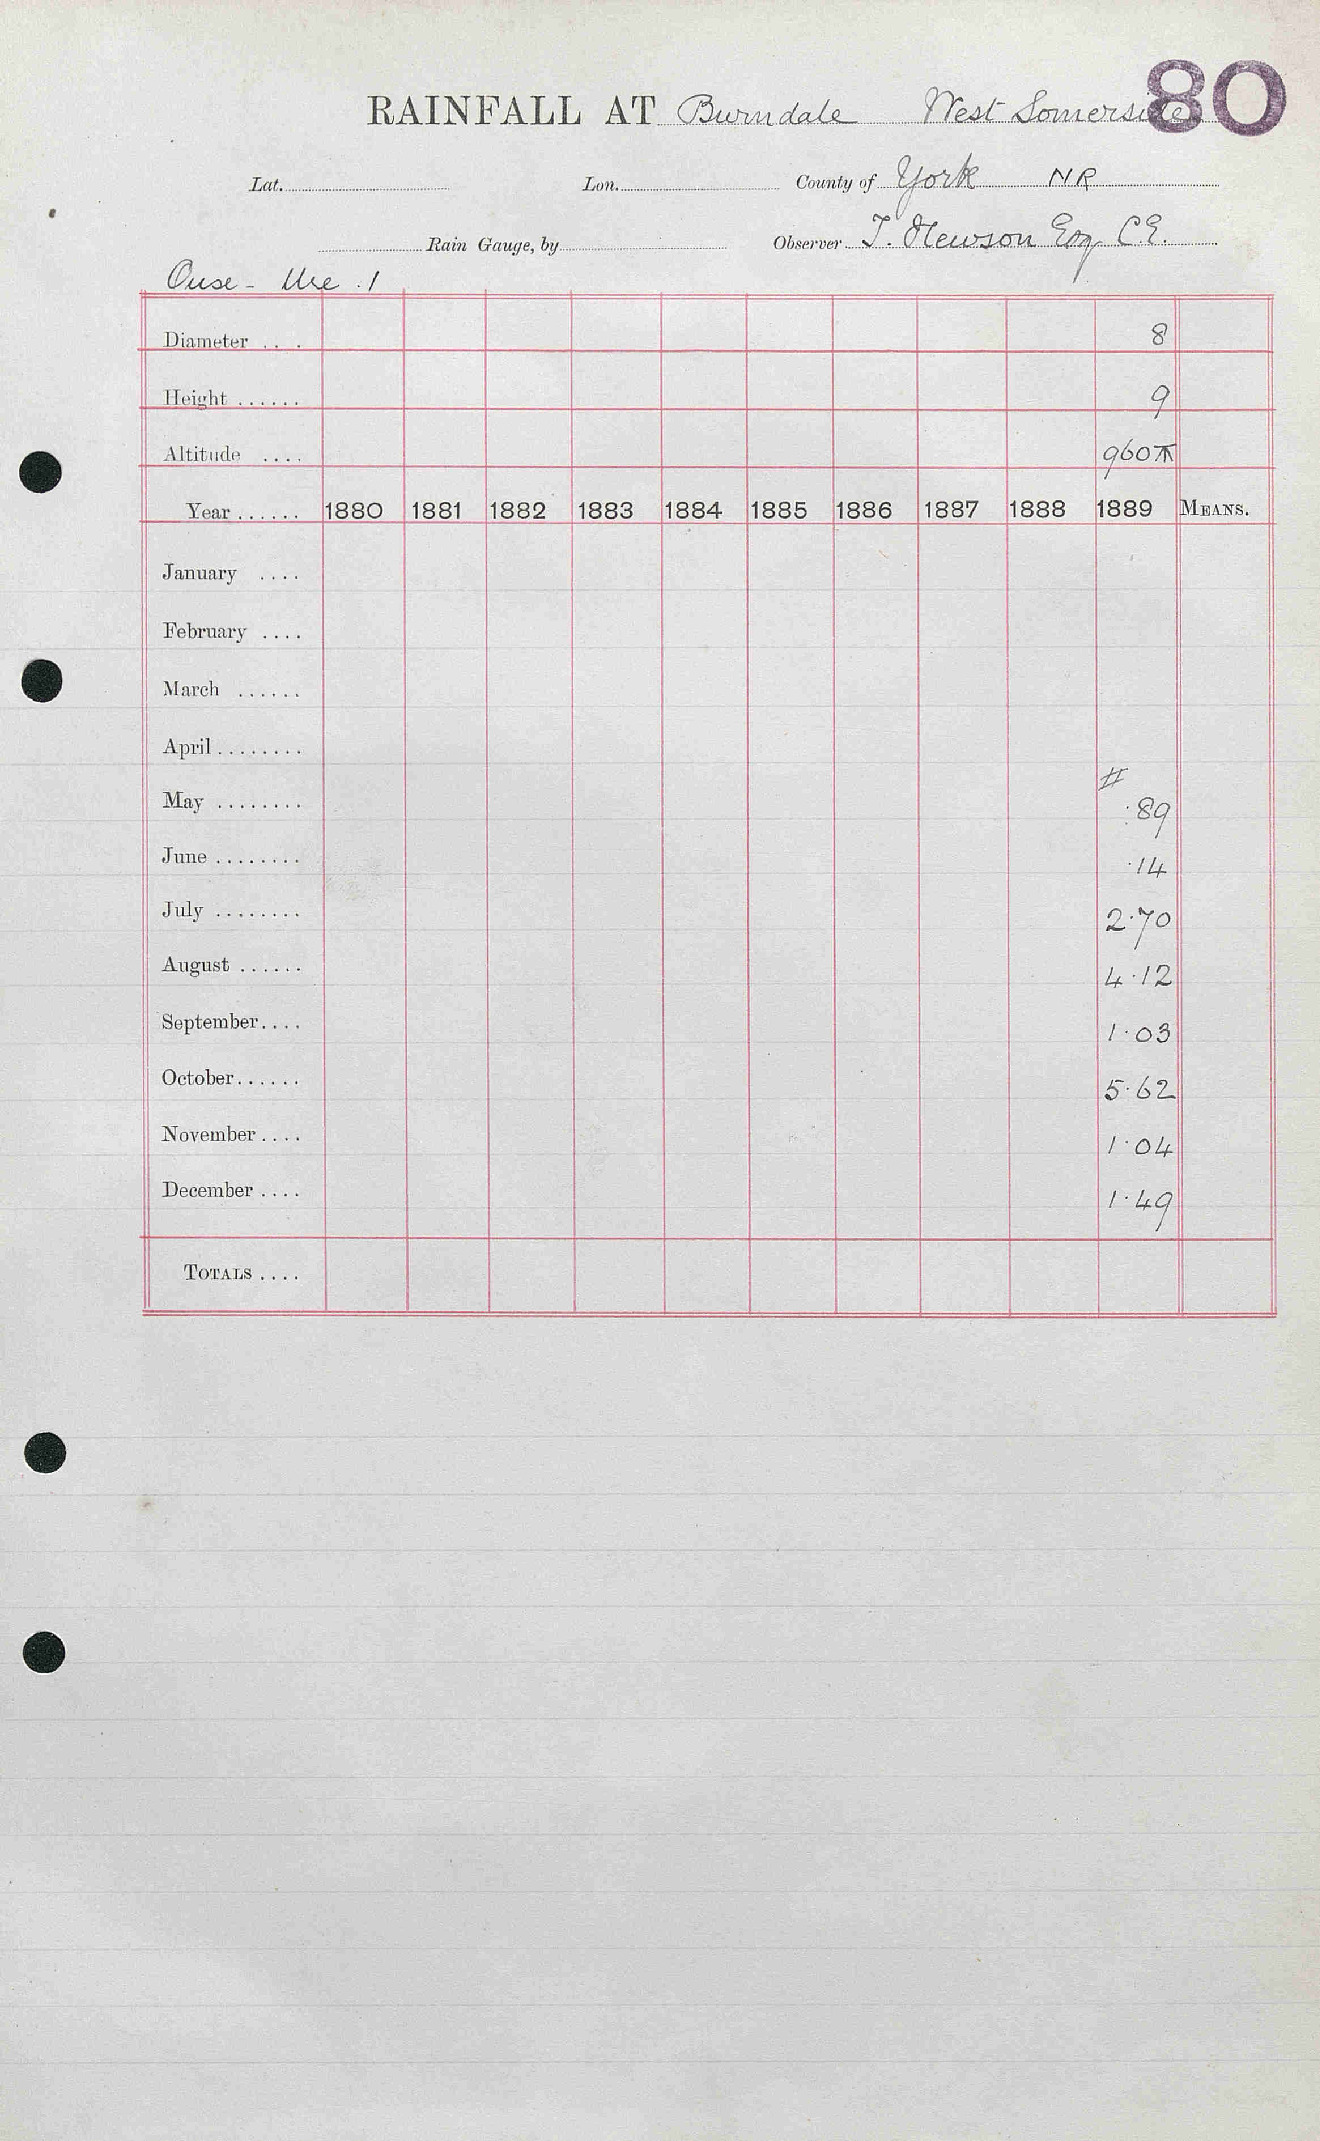 80
RAINFALL AT Burndale West Somerside
Lat. Lon. County of York NR
Rain Gauge, by Observer T. Hewson Esq C.E.
Ouse - Ure . 1
Diameter .... 8
Height ...... 9
Altitude .... 960
Year ...... 1880 1881 1882 1883 1884 1885 1886 1887 1888 1889 MEANS.
January ....
February ....
March ......
April ........
#
May ........ .89
June ........ .14
July ........ 2.70
August ...... 4.12
September.... 1.03
October...... 5.62
November .... 1.04
December .... 1.49
TOTALS ....